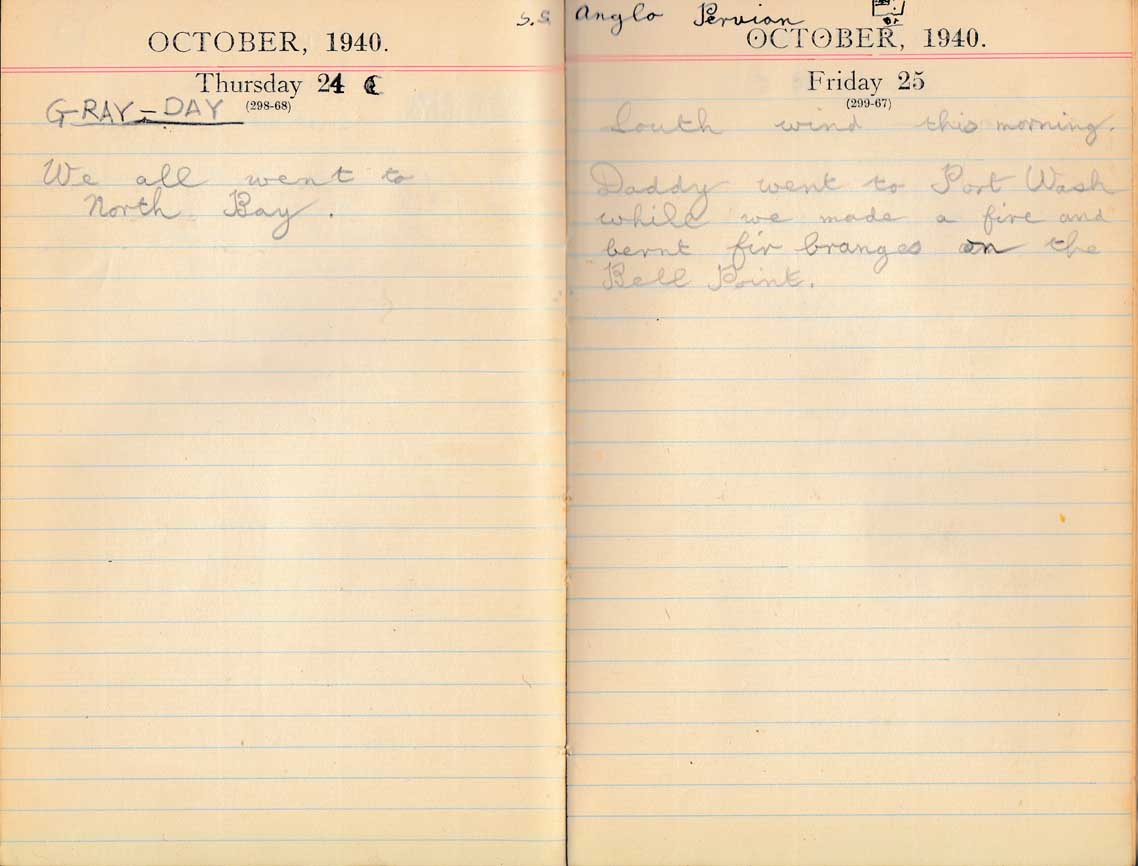 OCTOBER, 1940.
Thursday 24
(298-68)
G-RAY-DAY
We all went to
North Bay.
S.S. Anglo Pervian
OCTOBER, 1940.
Friday 25
(299-67)
South wind this morning.
Daddy went to Port Wash
while we made a fire and
bernt fir branges on the
Bell Point.